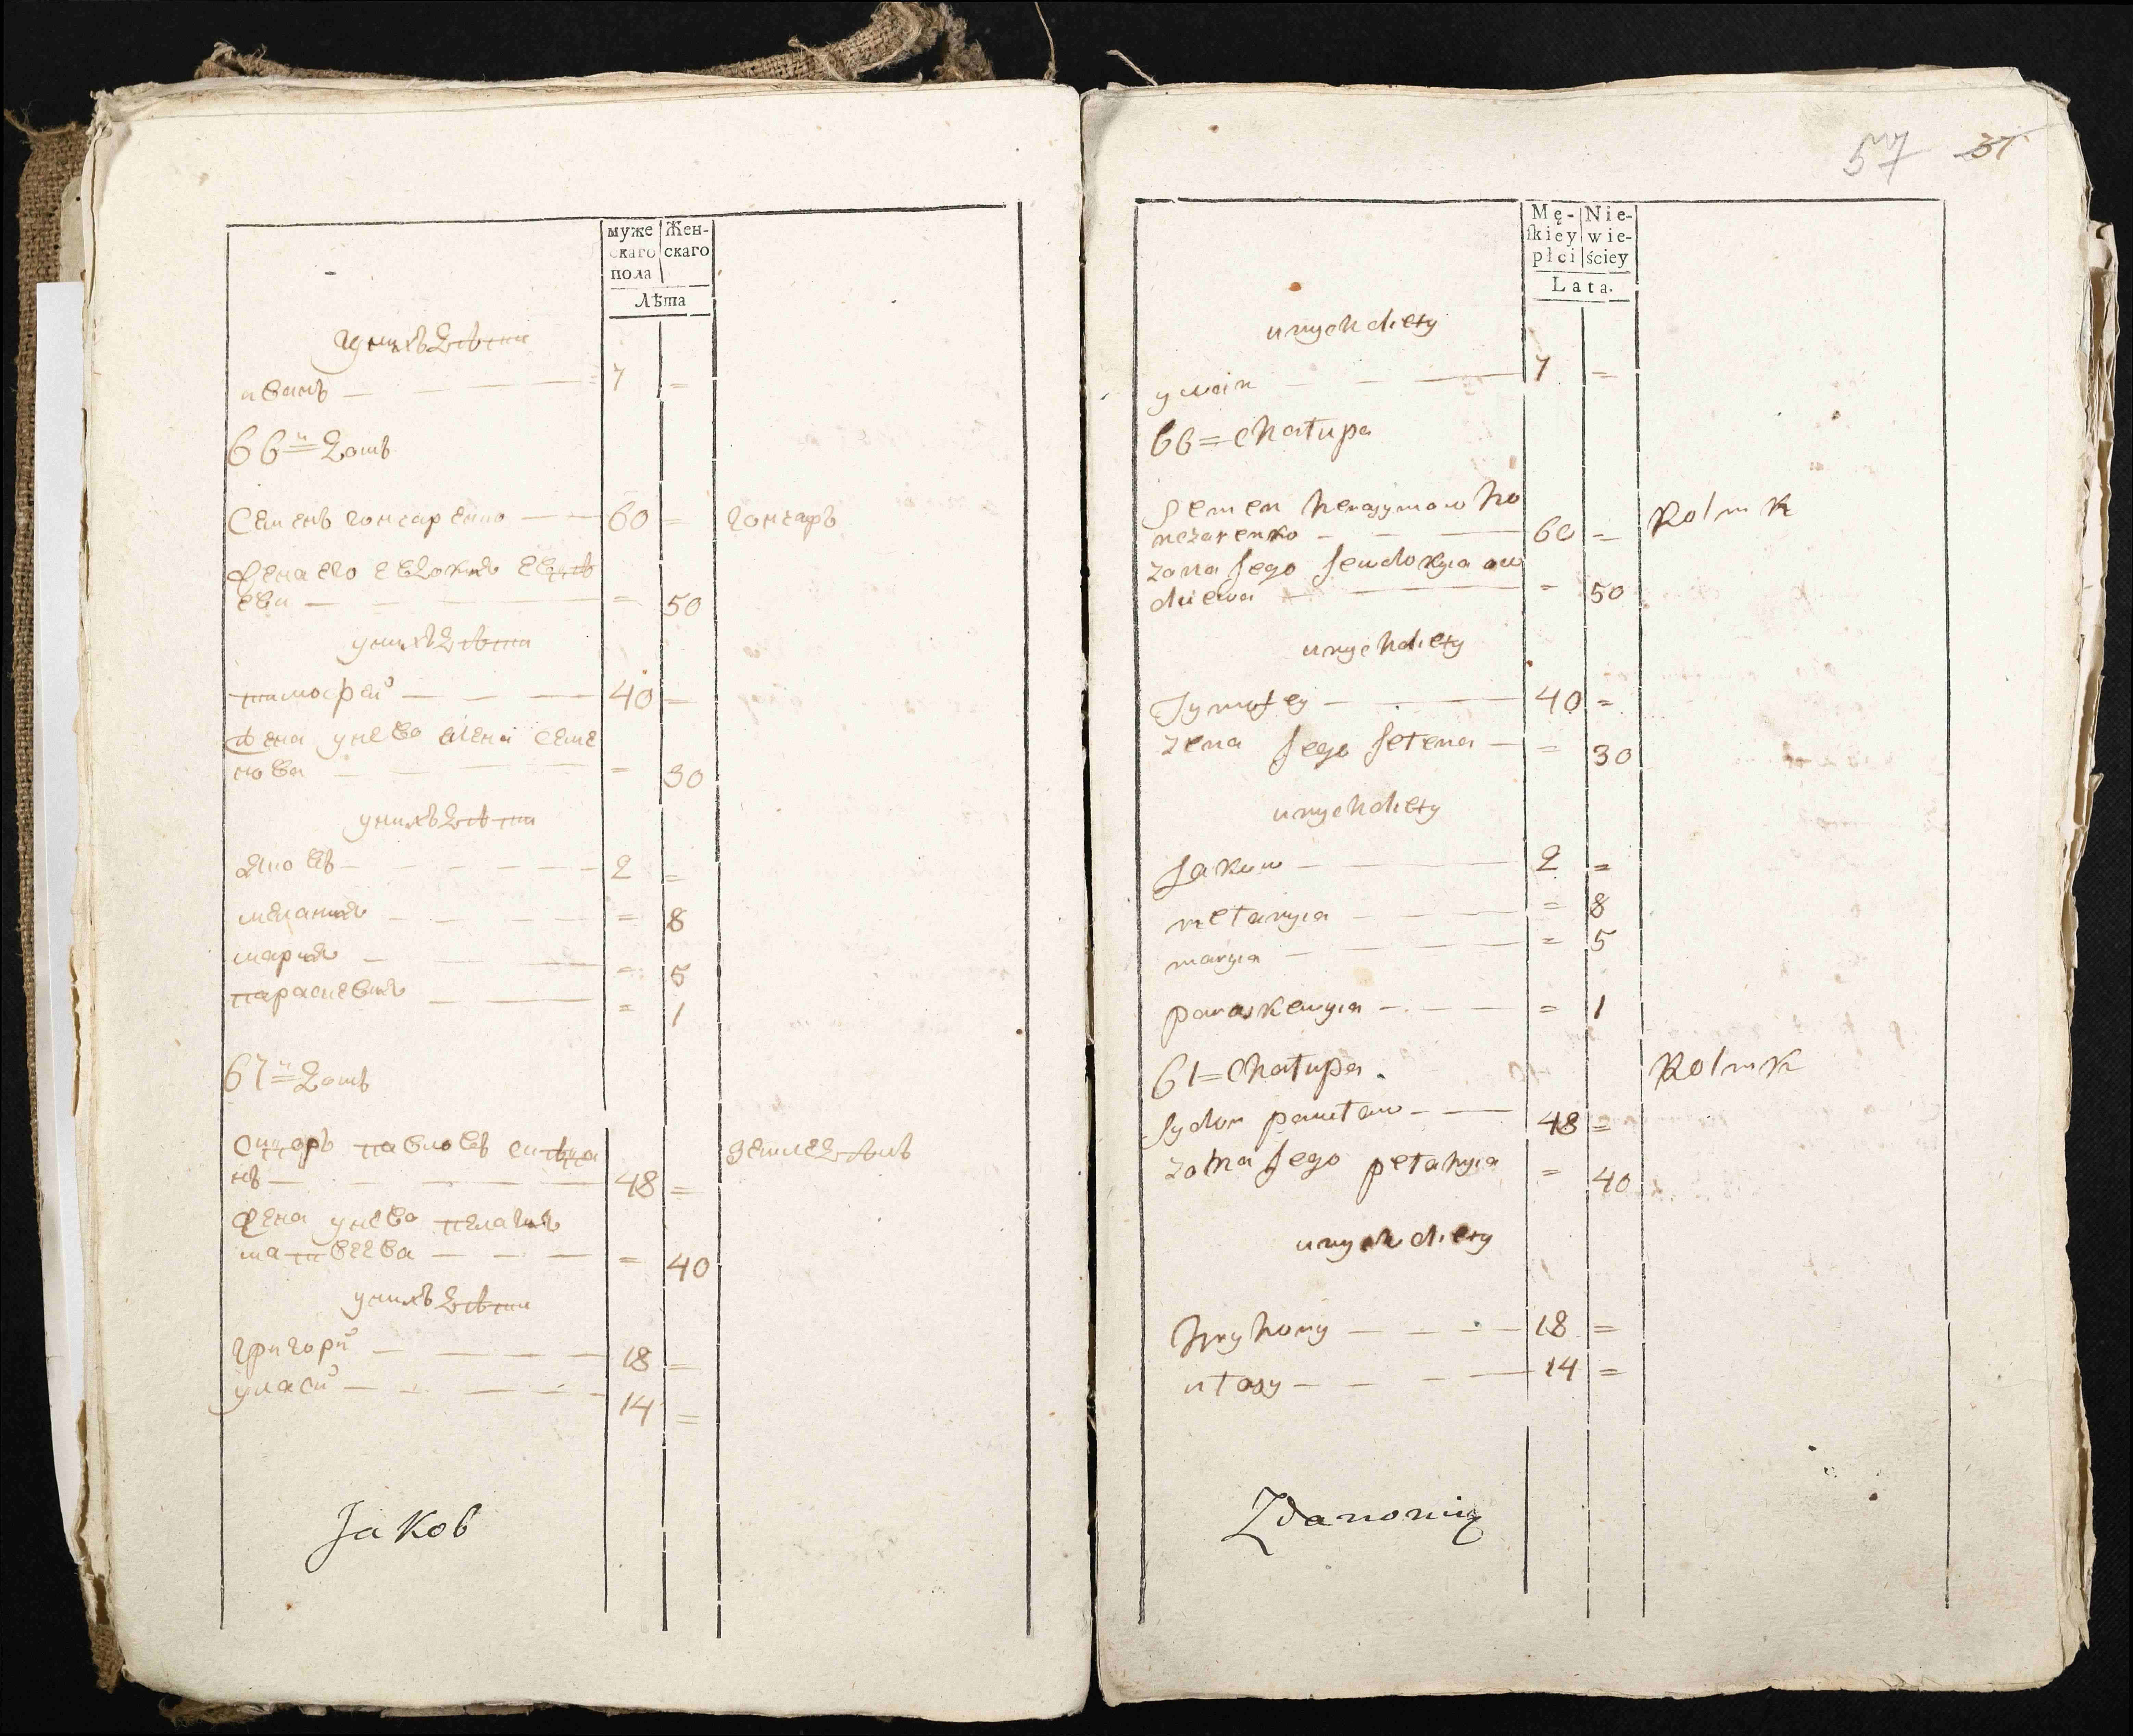 муже
скаго
пола
Жен-
скаго
Лѣта
у нихъ дѣти
иванъ — — — — = 7 =
66=й домъ
Семенъ гончаренко — — 60 = гончаръ
Жена его евдокия
ева — — — = 50
у нихъ дѣти
тимофей — — — 40 =
Жена у нево елена семе
нова — — — = 30
у нихъ дѣти
яковъ — — — — — 2 =
мелания — — — = 8
мария — — — = 5
параскевия — — = 1
67=й домъ
Сидоръ павловъ
нъ — — — — 48 = земледѣлъ
Жена у нево пелагия
матвеева — — — = 40
у нихъ дѣти
григорий — — — — 18 =
уласий — — — — 14 =
Jakob
57 37
Mę-
skiey
płci
Nie-
wie-
ściey
Lata.
u nych diety
ywan — — — 7 =
66=Chałupa
Semen herasymow ho
nczarenko — — — 60 = Rolnik
zona jego jewdokyia aw
diewa — — = 50
u nych diety
Tymofey — — — 40 =
zena jego jełena — = 30
u nych diety
jakow — — 2 =
mełanyia — — — = 8
maryia — — — — = 5
paraskewyia — — — = 1
67=Chałupa. Rolnik
sydor pawłow — — 48 =
zona jego pełahyia = 40
u nych diety
hryhory — — — — 18 =
ułasy — — — — 14 =
Zdanowicz